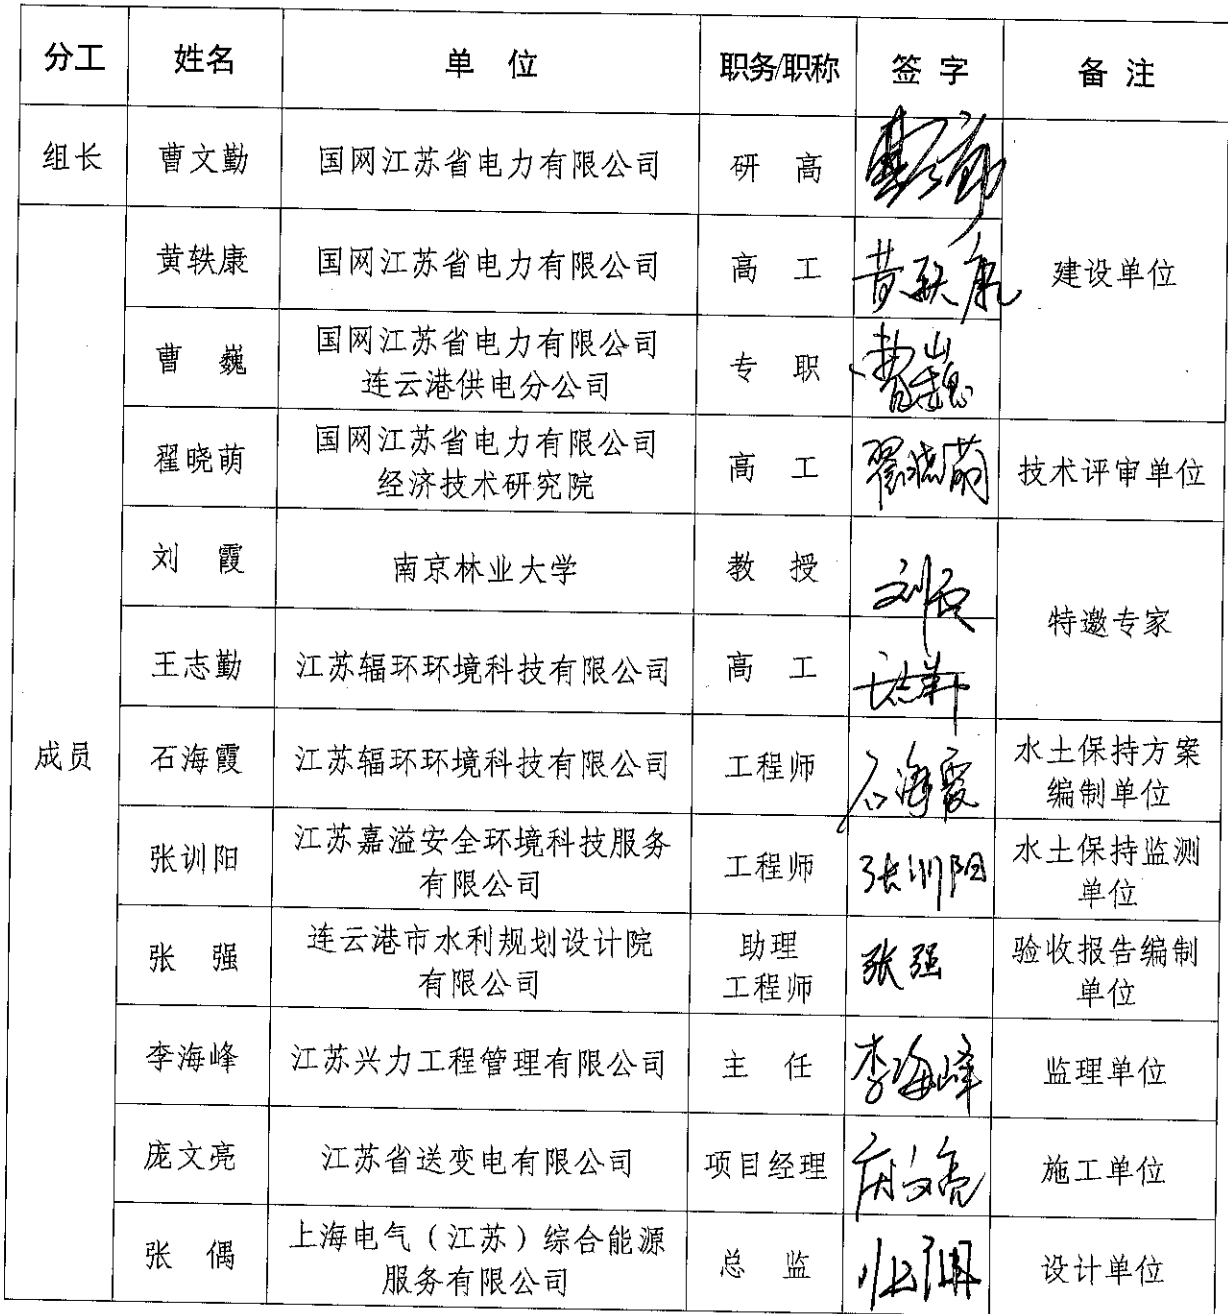 分工 姓名 单 位 职务/职称 签 字 备 注
组长 曹文勤 国网江苏省电力有限公司 研 高
黄轶康 国网江苏省电力有限公司 高 工 黄轶康 建设单位
曹 巍 国网江苏省电力有限公司
连云港供电分公司 专 职 曹巍
翟晓萌 国网江苏省电力有限公司
经济技术研究院 高 工 翟晓萌 技术评审单位
刘 霞 南京林业大学 教 授 刘霞
特邀专家
王志勤 江苏辐环环境科技有限公司 高 工
成员 石海霞 江苏辐环环境科技有限公司 工程师 石海霞 水土保持方案
编制单位
张训阳 江苏嘉溢安全环境科技服务
有限公司 工程师 张训阳 水土保持监测
单位
张 强 连云港市水利规划设计院
有限公司 助理
工程师 张强 验收报告编制
单位
李海峰 江苏兴力工程管理有限公司 主 任 李海峰 监理单位
庞文亮 江苏省送变电有限公司 项目经理 庞文亮 施工单位
张 偶 上海电气（江苏）综合能源
服务有限公司 总 监 设计单位